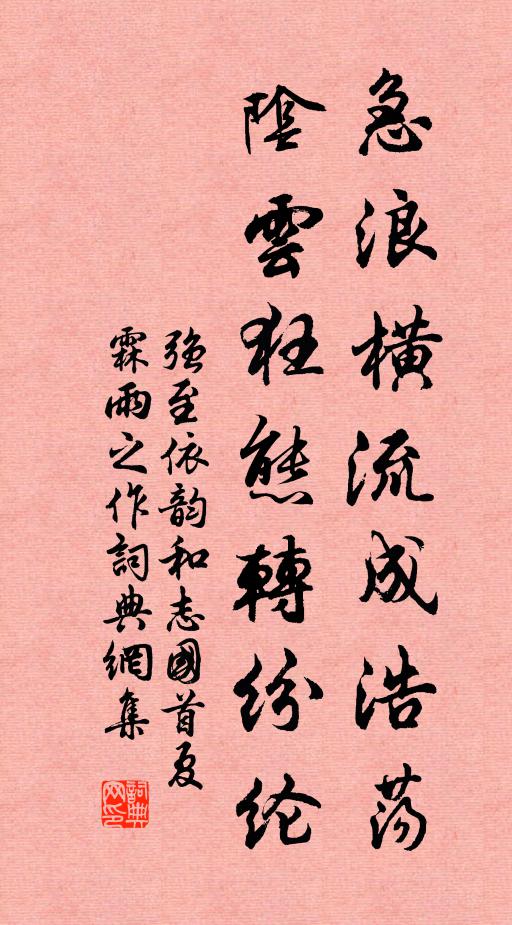 急浪橫流成浩荡
陰雲狂態轉纷纶
強至依韵和志國首夏
霖雨之作詞典網集
詞典网印